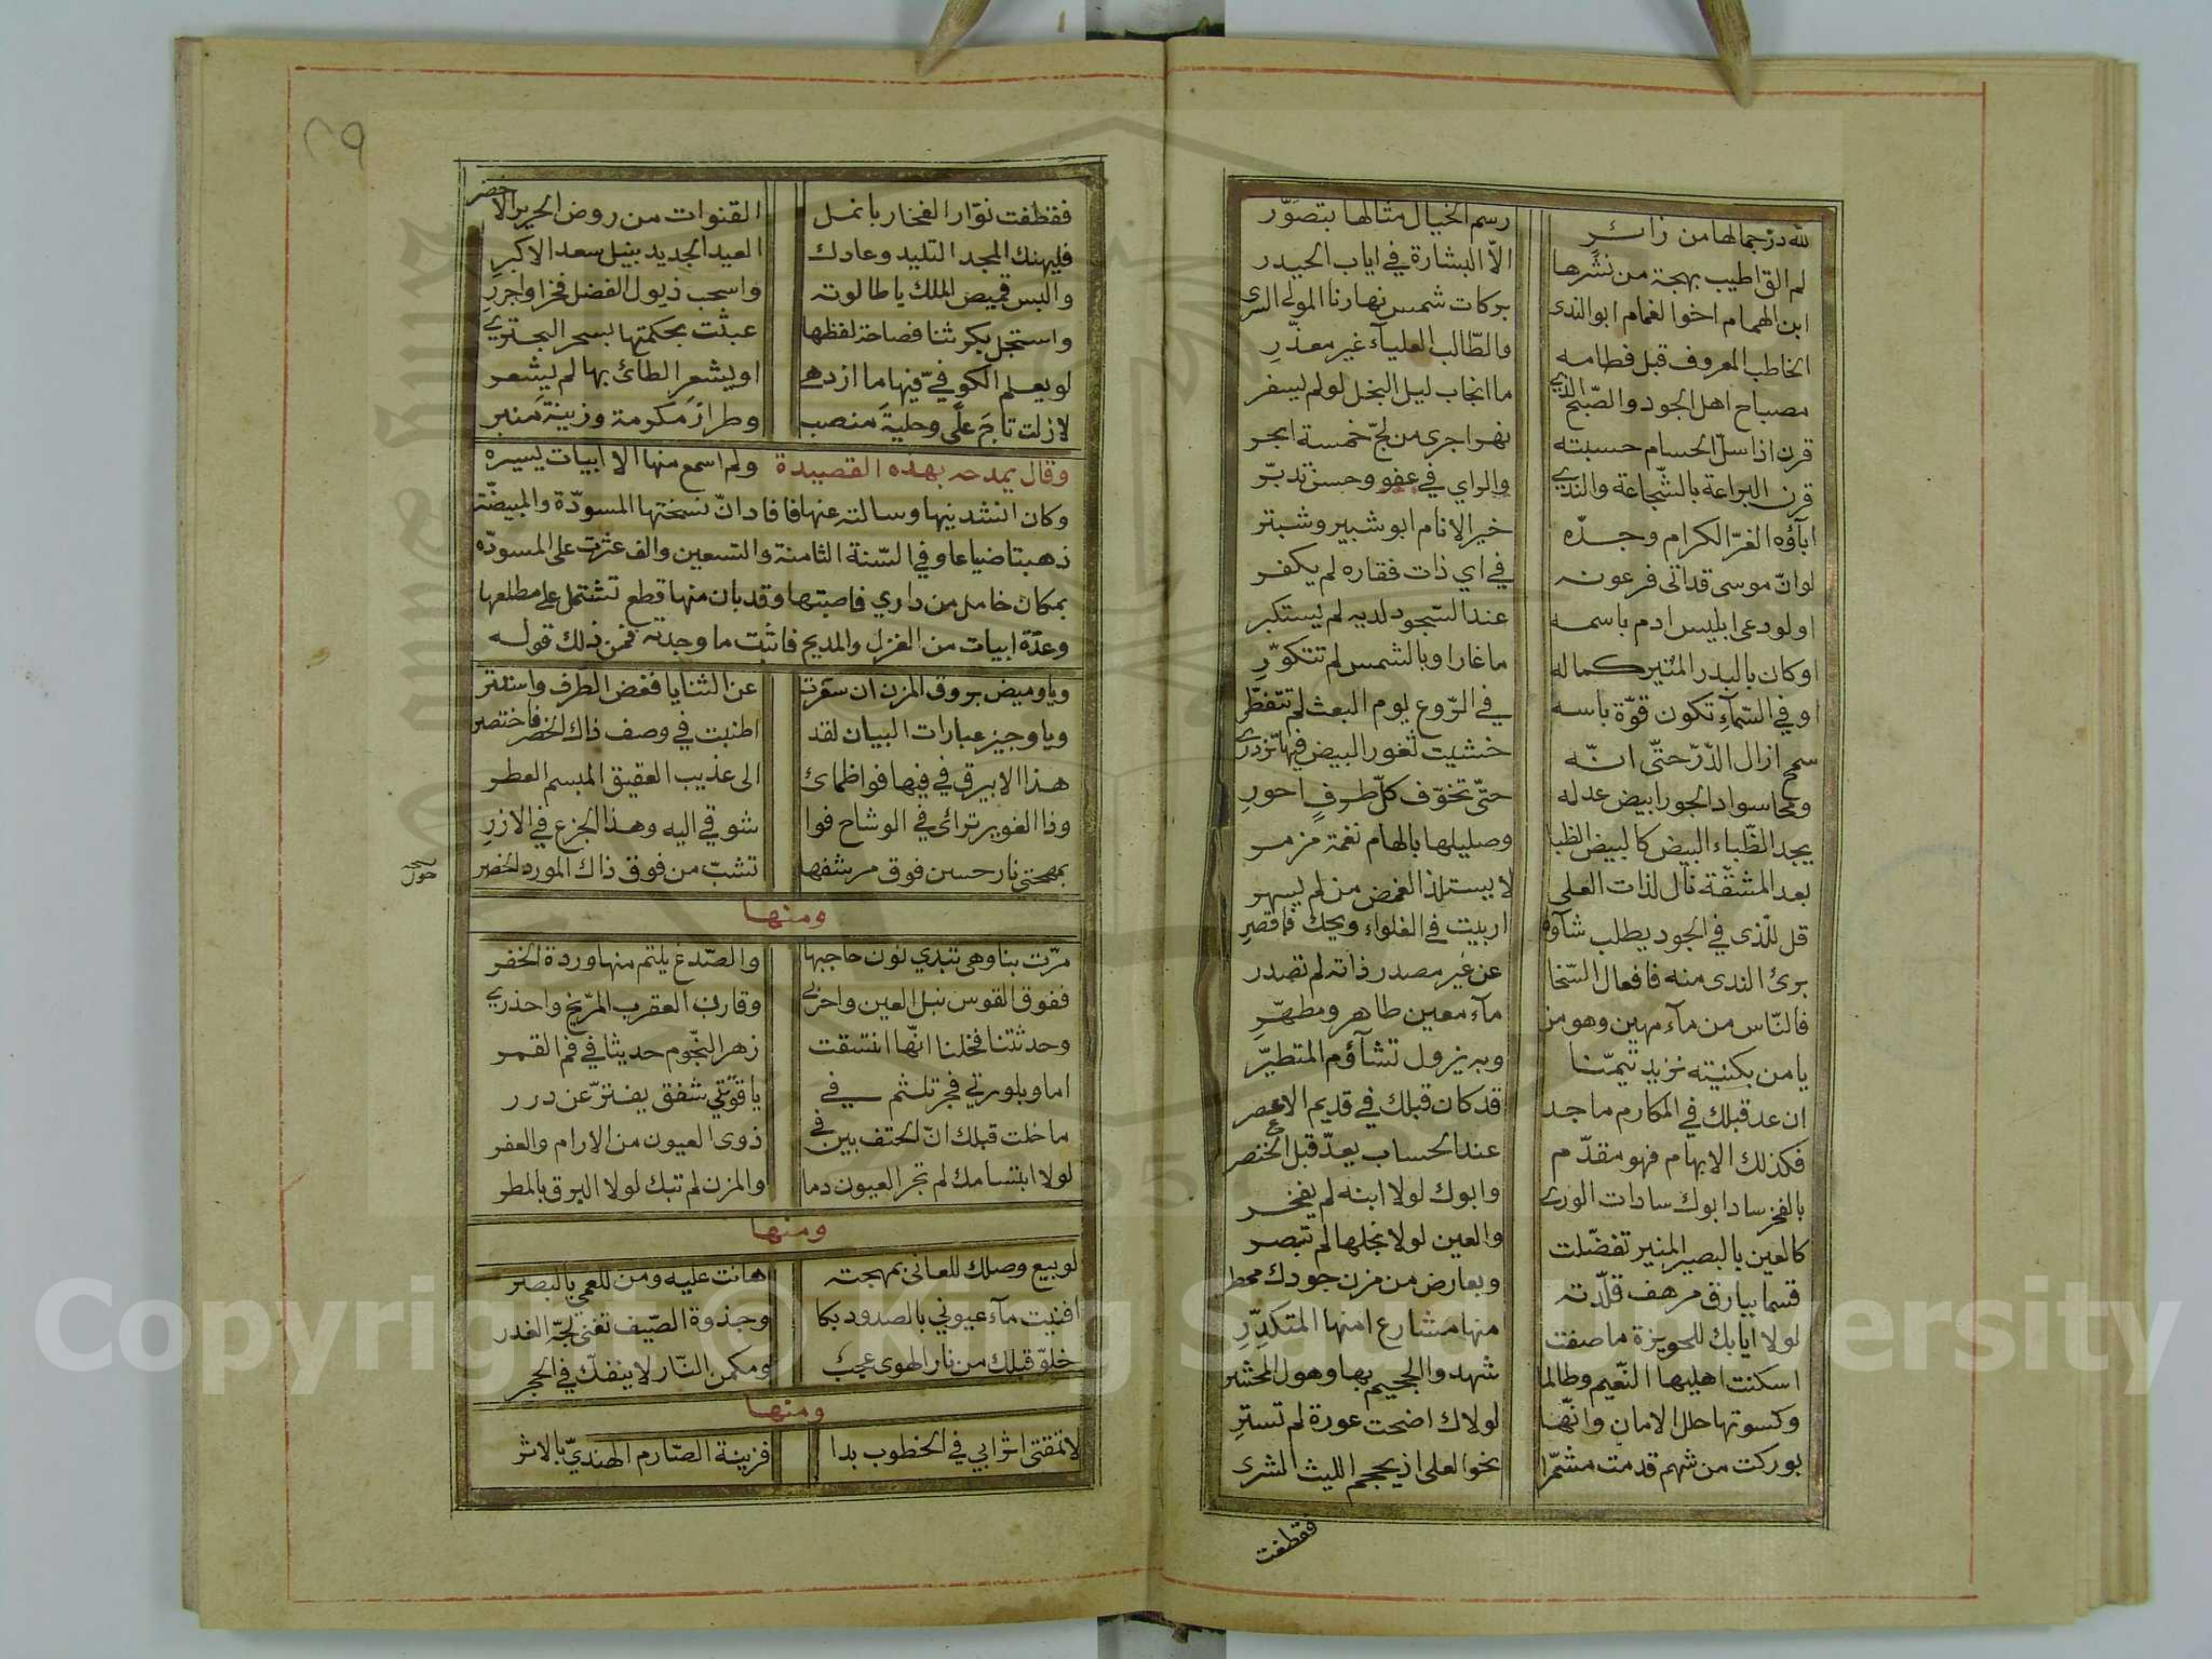 لله درّ جمالها من زائرٍ رسم الخيال مثالها بتصوّر
لم الق اطيب بهجة من نشرها الّا البشارة في اياب الحيدر
ابن الهمام اخو الغمام ابو الندى بركات شمس نهارنا المولى السرى
الخاطب المعروف قبل فطامه والطّالب العلياء غير معذّرِ
مصباح اهل الجود والصّبح الذي ما انجاب ليل البخل لو لم يسفر
قرن اذا سلّ الحسام حسبته نهرا جرى من لجّ خمسة ابحر
قرن البراعة بالشّجاعة والندى والراي في عفو وحسن تدبّر
اباؤه الغرّ الكرام وجدّه خير الانام ابو شبير وشبّر
لو انّ موسى قد اتى فرعونه في اي ذات فقاره لم يكفر
او لو دعى ابليس ادم باسمه عند السّجود لديه لم يستكبر
او كان بالبدر المنير كماله ما غار او بالشمس لم تتكوّرِ
او في السّماء تكون قوّة باسه في الرّوع يوم البعث لم تتفطّر
سمح ازال الدّرّ حتّى انّه خشيت ثغور البيض فيها تزدرى
ومحا سواد الجور ابيض عدله حتّى تخوّف كلّ طرفٍ احورِ
يجد الظّباء البيض كالبيض الظبا وصليلها بالهام نغمة مزمر
بعد المشقّة نال لذات العلى لا يستلذ الغمض من لم يسهر
قل للّذى في الجود يطلب شاوه اربيت في الغلواء ويحك فاقصرِ
برئ الندى منه فافعال السّخا عن غير مصدر ذاته لم تصدر
فالنّاس من ماء مهين وهو من ماء معين طاهر ومطهّرِ
يا من بكنيته نزيد تيمّنا وبه يزول تشاؤم المتطيّر
ان عد قبلك في المكارم ماجد قد كان قبلك في قديم الاعصر
فكذلك الابهام فهو مقدّم عند الحساب يعدّ قبل الخنصر
بالفخر ساد ابوك سادات الورى وابوك لولا ابنه لم يفخر
كالعين بالبصير المنير تفضّلت والعين لولا نجلها لم تبصر
قسما ببارق مرهف قلّدته وبعارض من مزن جودك ممطر
لولا ايابك للحويزة ما صفت منها مشارع امنها المتكدّرِ
اسكنت اهليها النّعيم وطالما شهدوا الجحيم بها وهول المحشر
وكسوتها حلل الامان وانّها لولاك اضحت عورة لم تستر
بوركت من شهم قدمت مشمّرا نحو العلى اذ يحجم الليث الشرى
فقطفت
٢٩
فقطفت نوّار الفخار بانمل القنوات من روض الحرير الاخضر
فليهنك المجد التليد وعادك العيد الجديد بنيل سعد الاكبرِ
والبس قميص الملك يا طالوته واسحب ذيول الفضل فخرا واجررِ
واستجل بكر ثنا فصاحة لفظها عبثت بحكمتها بسحر البحتري
لو يعلم الكوفيّ فيها ما ازدهى او يشعر الطائى بها لم يشعر
لازلت تاج علًى وحلية منصب وطراز مكرمة وزينة منبر
وقال يمدحه بهذه القصيدة ولم اسمع منها الا ابيات يسيره
وكان انشدنيها وسالته عنها فافاد انّ نسختها المسودّة والمبيضّة
ذهبتا ضياعا وفي السّنة الثامنة والتسعين والف عثرت على المسودّه
بمكان خامل من داري فاصبتها وقد بان منها قطع تشتمل على مطلعها
وعدّة ابيات من الغزل والمديح فاثبت ما وجدته فمن ذلك قوله
ويا وميض بروق المزن ان سفرت عن الثنايا فغض الطرف واستتر
ويا وجيز عبارات البيان لقد اطنبت في وصف ذاك الخصر فاختصر
هذا الابيرق في فيها فوا ظمائ الى عذيب العقيق المبسم العطر
وذا الغوير ترائى في الوشاح فوا شوقي اليه وهذا الجزع في الازرِ
بمهجتى نار حسن فوق مرشفها تشبّ من فوق ذاك المورد الخصر
حول
ومنها
مرّت بنا وهى تبدي نون حاجبها والصّدغ يلثم منها وردة الخفر
ففوق القوس نبل العين واحزنى وقارن العقرب المرّيخ واحذري
وحدثتنا فخلنا انّها انتسقت زهر النّجوم حديثا في فم القمر
اما وبلورتي فجر تلثم في ياقوتتي شفق يفترّ عن درر
ما خلت قبلك انّ الحتف بين في ذوى العيون من الارام والعفر
لولا ابتسامك لم تجر العيون دما والمزن لم تبك لولا البرق بالمطر
ومنها
لو بيع وصلك للعانى بمهجته هانت عليه ومن للعمى بالبصر
افنيت ماء عيوني بالصدود بكا وجذوة الصّيف تفنى لجّة الغدر
خلوّ قبلك من نار الهوى عجب ومكمن النّار لا ينفكّ في الحجر
ومنها
لا تمقتى اثرا بي في الخطوب بدا فزينة الصّارم الهنديّ بالاثر
Copyright © King Saud University